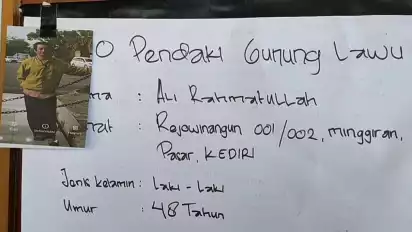 O Pendaki Gunung Lawu
ma : Ali Rahmatullah
mat : Rejowinangun 001/002, minggiran,
Papar, KEDIRI
Jenis kelamin : Laki - Laki
Umur : 48 Tahun